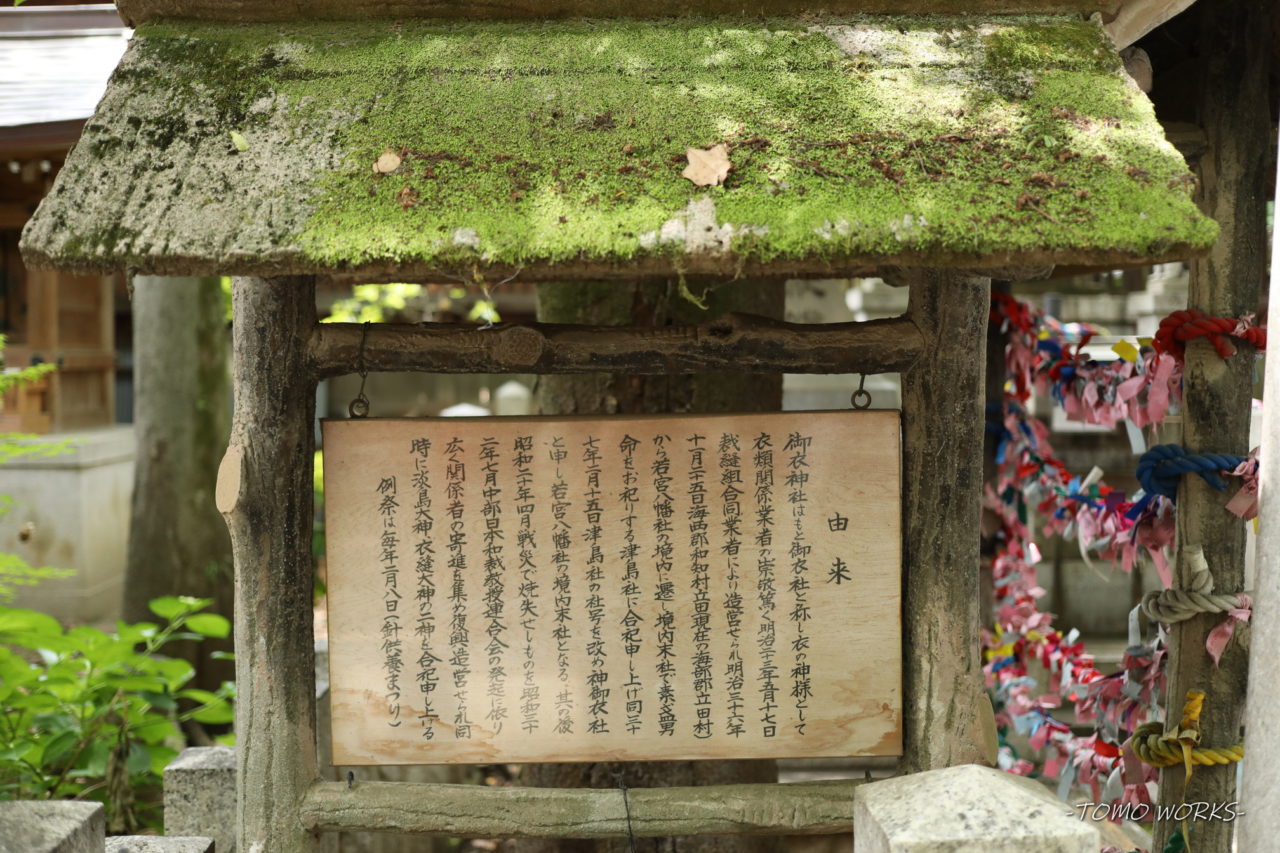 由来
御衣神社はもと御衣社と称し衣の神様として
衣類関係業者の崇敬篤く明治三十三年五月十七日
裁縫組合同業者により造営せられ明治三十六年
十月二十五日海西郡和和村立田現在の海部郡立田村)
から若宮八幡社の境内に遷し境内末社で素盞男
命をお祀りする津島社に合祀申し上げ同三十
七年二月十五日津島社の社号を改め神御衣社
と申し若宮八幡社の境内末社となる。其の後
昭和二十年四月戦災で焼失せしものを昭和三十
二年七月中部日本和裁教授連合会の発起に依り
広く関係者の寄進を集め復興造営せられ同
時に淡島大神、衣縫大神の二神を合祀申し上げる
例祭は毎年二月八日(針供養まつり)
-TOMO WORKS-